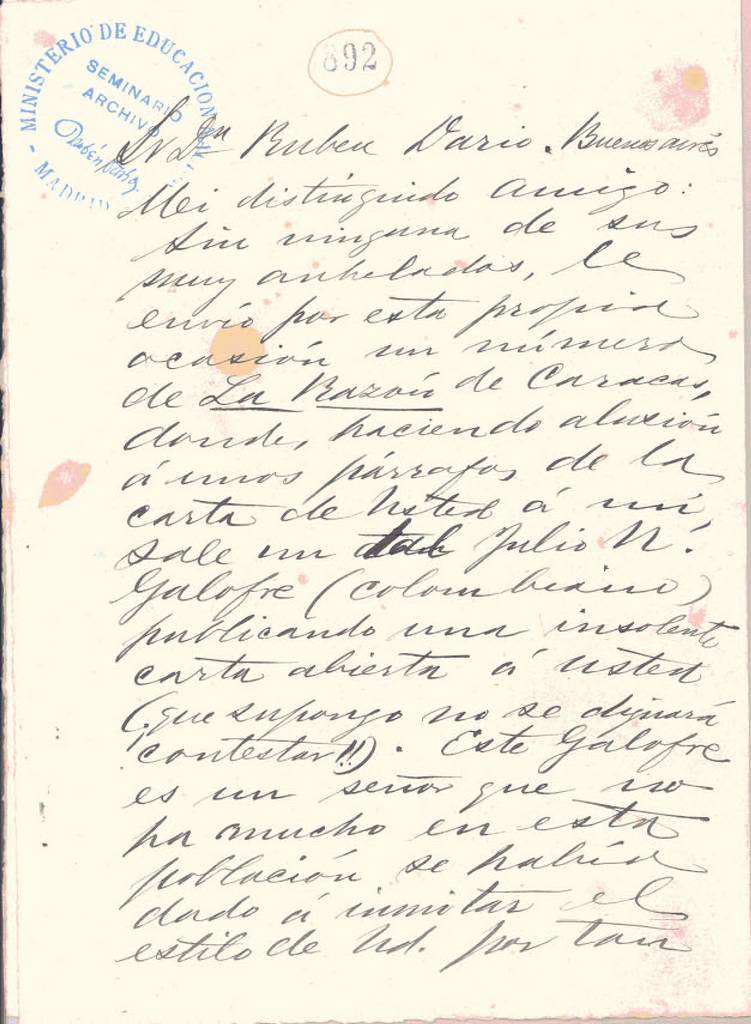 892
MINISTERIO DE EDUCACION
SEMINARIO
ARCHIVO
Rubén Darío
MADRID
Sr Dn Ruben Dario. Buenos aires
Mi distinguido amigo:
Sin ninguna de sus
muy anheladas, le
envío por esta propia
ocasión un número
de La Razón de Caracas,
donde, haciendo alusión
á unos párrafos de la
carta de Usted á mí,
sale un tal Julio N.
Galofre (colombiano)
publicando una insolente
carta abierta á usted
(¡que supongo no se dignará
contestar!!). Este Galofre
es un señor que no
ha mucho en esta
población se había
dado á inmitar el
estilo de Ud. por tan